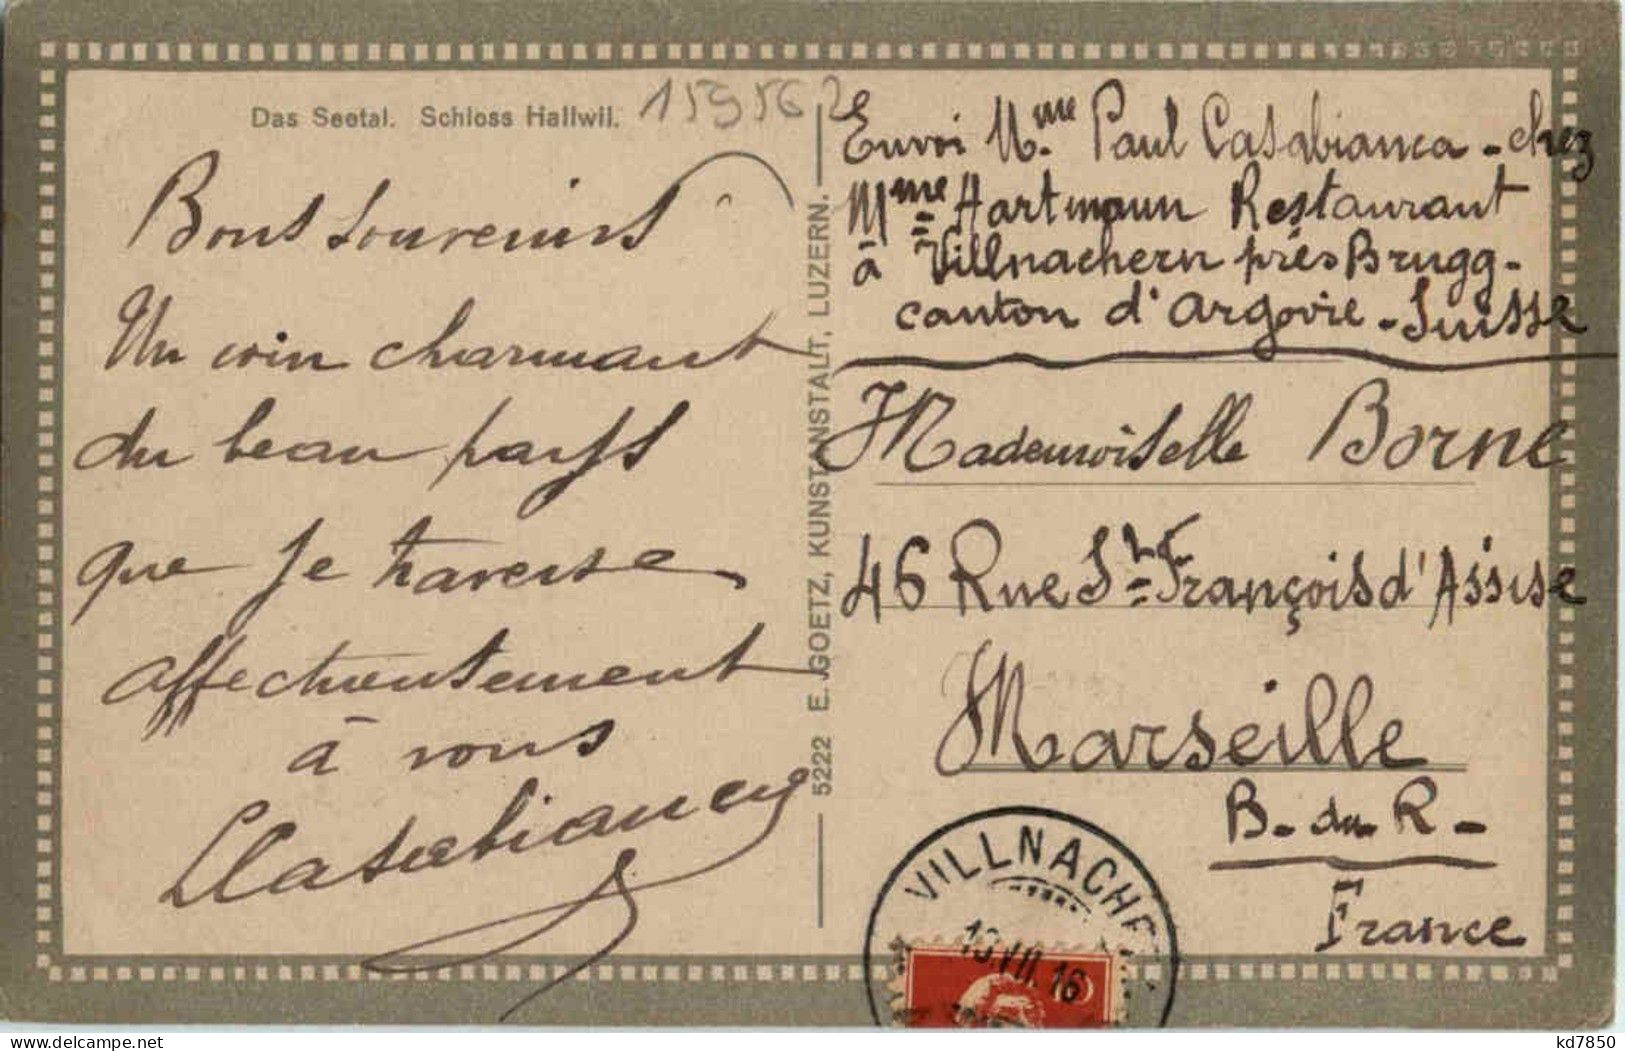 Das Seetal. Schloss Hallwil.
159562
Bons Souvenirs
Un coin charmant
du beau pays
que je traverse
affectueusement
à vous
Casabianca
5222 E. GOETZ, KUNSTANSTALT, LUZERN.
Envoi Mme Paul Casabianca - chez
Mme Hartmann Restaurant
à Villnachern près Brugg -
canton d'Argovie - Suisse
Mademoiselle Borne
46 Rue St François d'Assise
Marseille
B. du R -
France
VILLNACHE
13.VII.16
kd7850